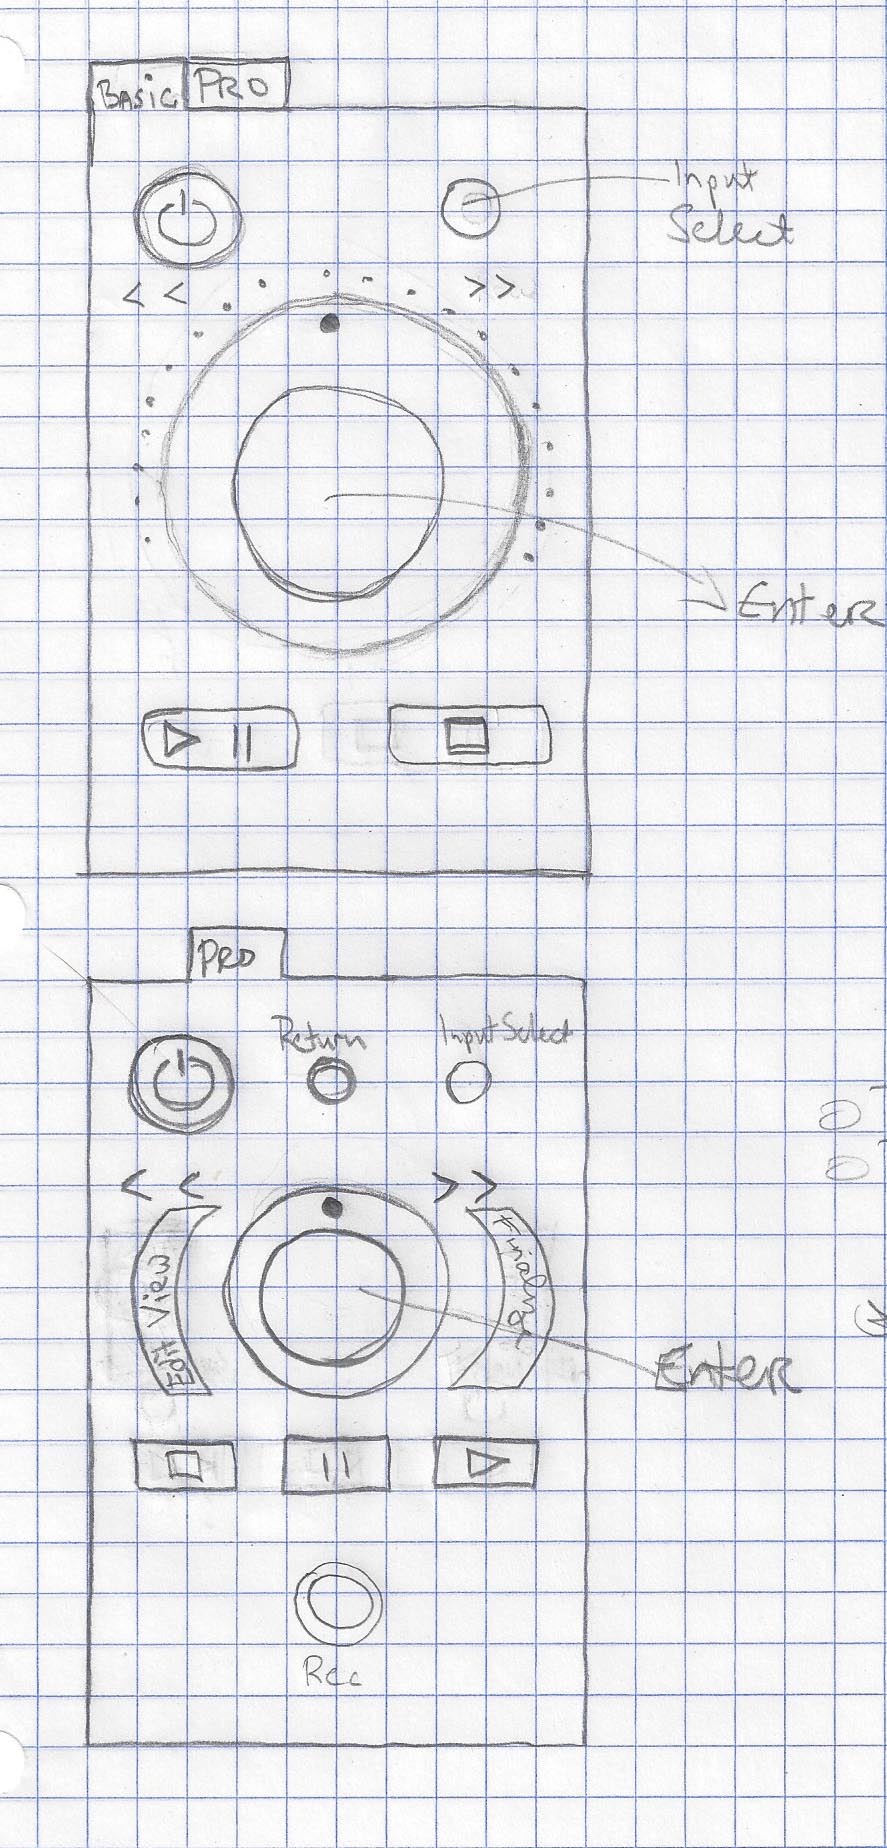 BASIC PRO
Input
Select
<< >>
Enter
PRO
Return Input Select
<< >>
Edit View
Finalize
Enter
Rec